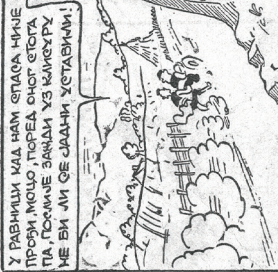 У РАВНИЦИ КАД НАМ СПАСА НИЈЕ
ПРОЂИ, МОЦО, ПОРЕД ОНОГ СТОГА
ПА, ПОСЛИЈЕ ЗАЂИ УЗ КЛИСУРУ
НЕ БИ ЛИ СЕ ЈАДНИ УСТАВИЛИ!